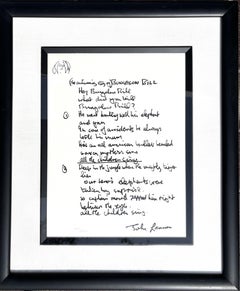 The continuing story of BUNGALOW BILL
Hey Bungalow Bill
what did you kill
Bungalow Bill?
① He went hunting with his elephant
and gun
In case of accidents he always
took his mum
he's an all american bullet headed
saxon mothers son
all the children sing
② Deep in the jungle where the mighty tiger
lies
elephants were
taken by surprise
so captain marvel zapped him right
between the eyes
all the children sing
John Lennon